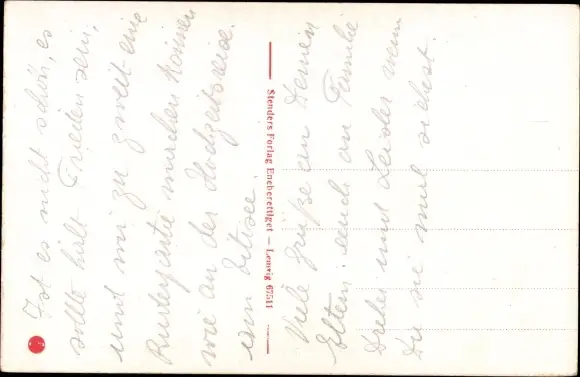 Ist es nicht schön, es
sollte bald Frieden sein,
und wir zu zweit eine
machen können
wie an der Hochzeitsreise.
Viele Grüße an Deinen
Eltern. auch an Familie
und wenn
Du sie mal siehst.
Stenders Forlag Eneberettiget — Lemvig 67511